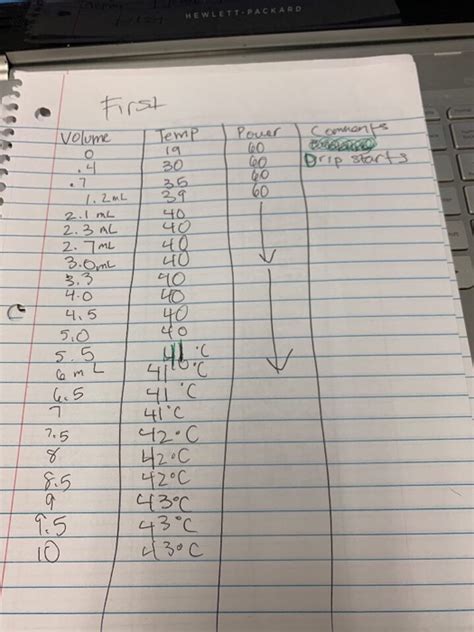 HEWLETT-PACKARD
First
Volume Temp Power Comments
0 19 60
.4 30 60 Drip starts
.7 35 60
1.2mL 39 60
2.1 mL 40
2.3 mL 40
2.7mL 40
3.0mL 40
3.3 40
4.0 40
4.5 40
5.0 40
5.5 41°C
6 mL 41°C
6.5 41°C
7 41°C
7.5 42°C
8 42°C
8.5 42°C
9 43°C
9.5 43°C
10 43°C